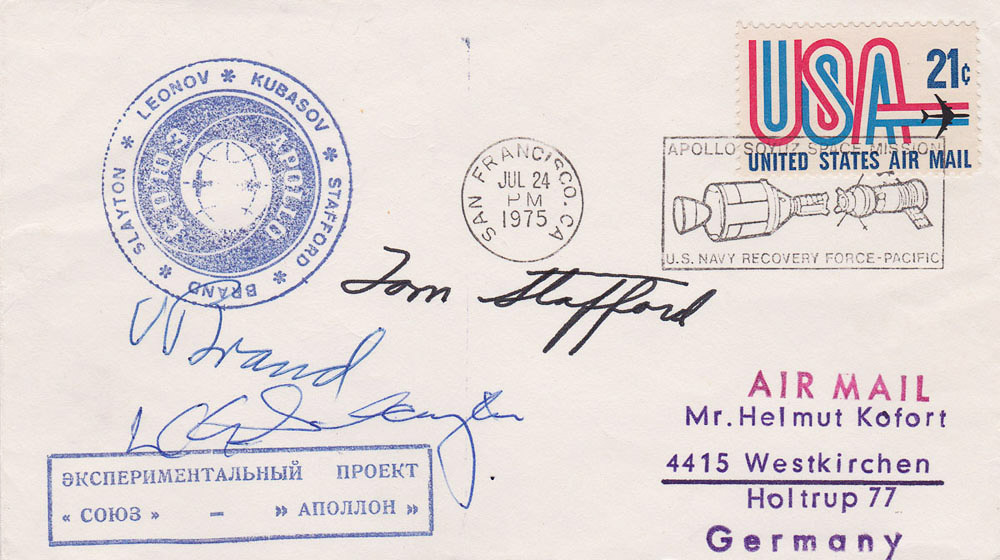 SLAYTON * LEONOV * KUBASOV * STAFFORD * BRAND *
СОЮЗ APOLLO
SAN FRANCISCO, CA
JUL 24
PM
1975
USA 21¢
UNITED STATES AIR MAIL
APOLLO SOYUZ SPACE MISSION
U.S. NAVY RECOVERY FORCE-PACIFIC
Tom Stafford
V Brand
Slayton
AIR MAIL
Mr. Helmut Kofort
4415 Westkirchen
Holtrup 77
Germany
ЭКСПЕРИМЕНТАЛЬНЫЙ ПРОЕКТ
« СОЮЗ » – » АПОЛЛОН »